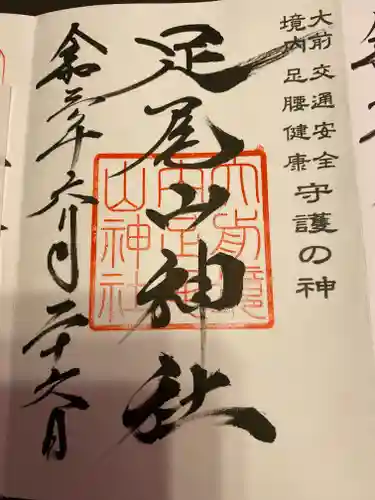 大前 交通安全
境内 足腰健康
守護の神
足尾山神社
大前境
内足尾
山神社
令和二年六月二十六日